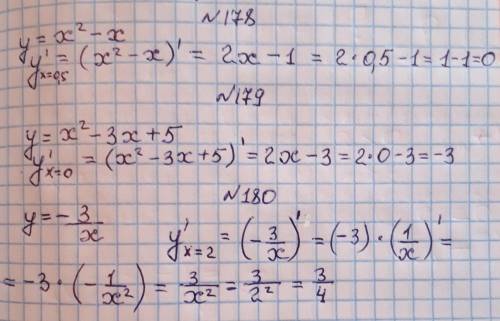 №178
y = x² - x
y'ₓ₌₀,₅ = (x² - x)' = 2x - 1 = 2·0,5 - 1 = 1-1 = 0
№179
y = x² - 3x + 5
y'ₓ₌₀ = (x² - 3x + 5)' = 2x - 3 = 2·0 - 3 = -3
№180
y = - 3/x   y'ₓ₌₂ = (- 3/x)' = (-3)·(1/x)' =
= -3·(- 1/x²) = 3/x² = 3/2² = 3/4